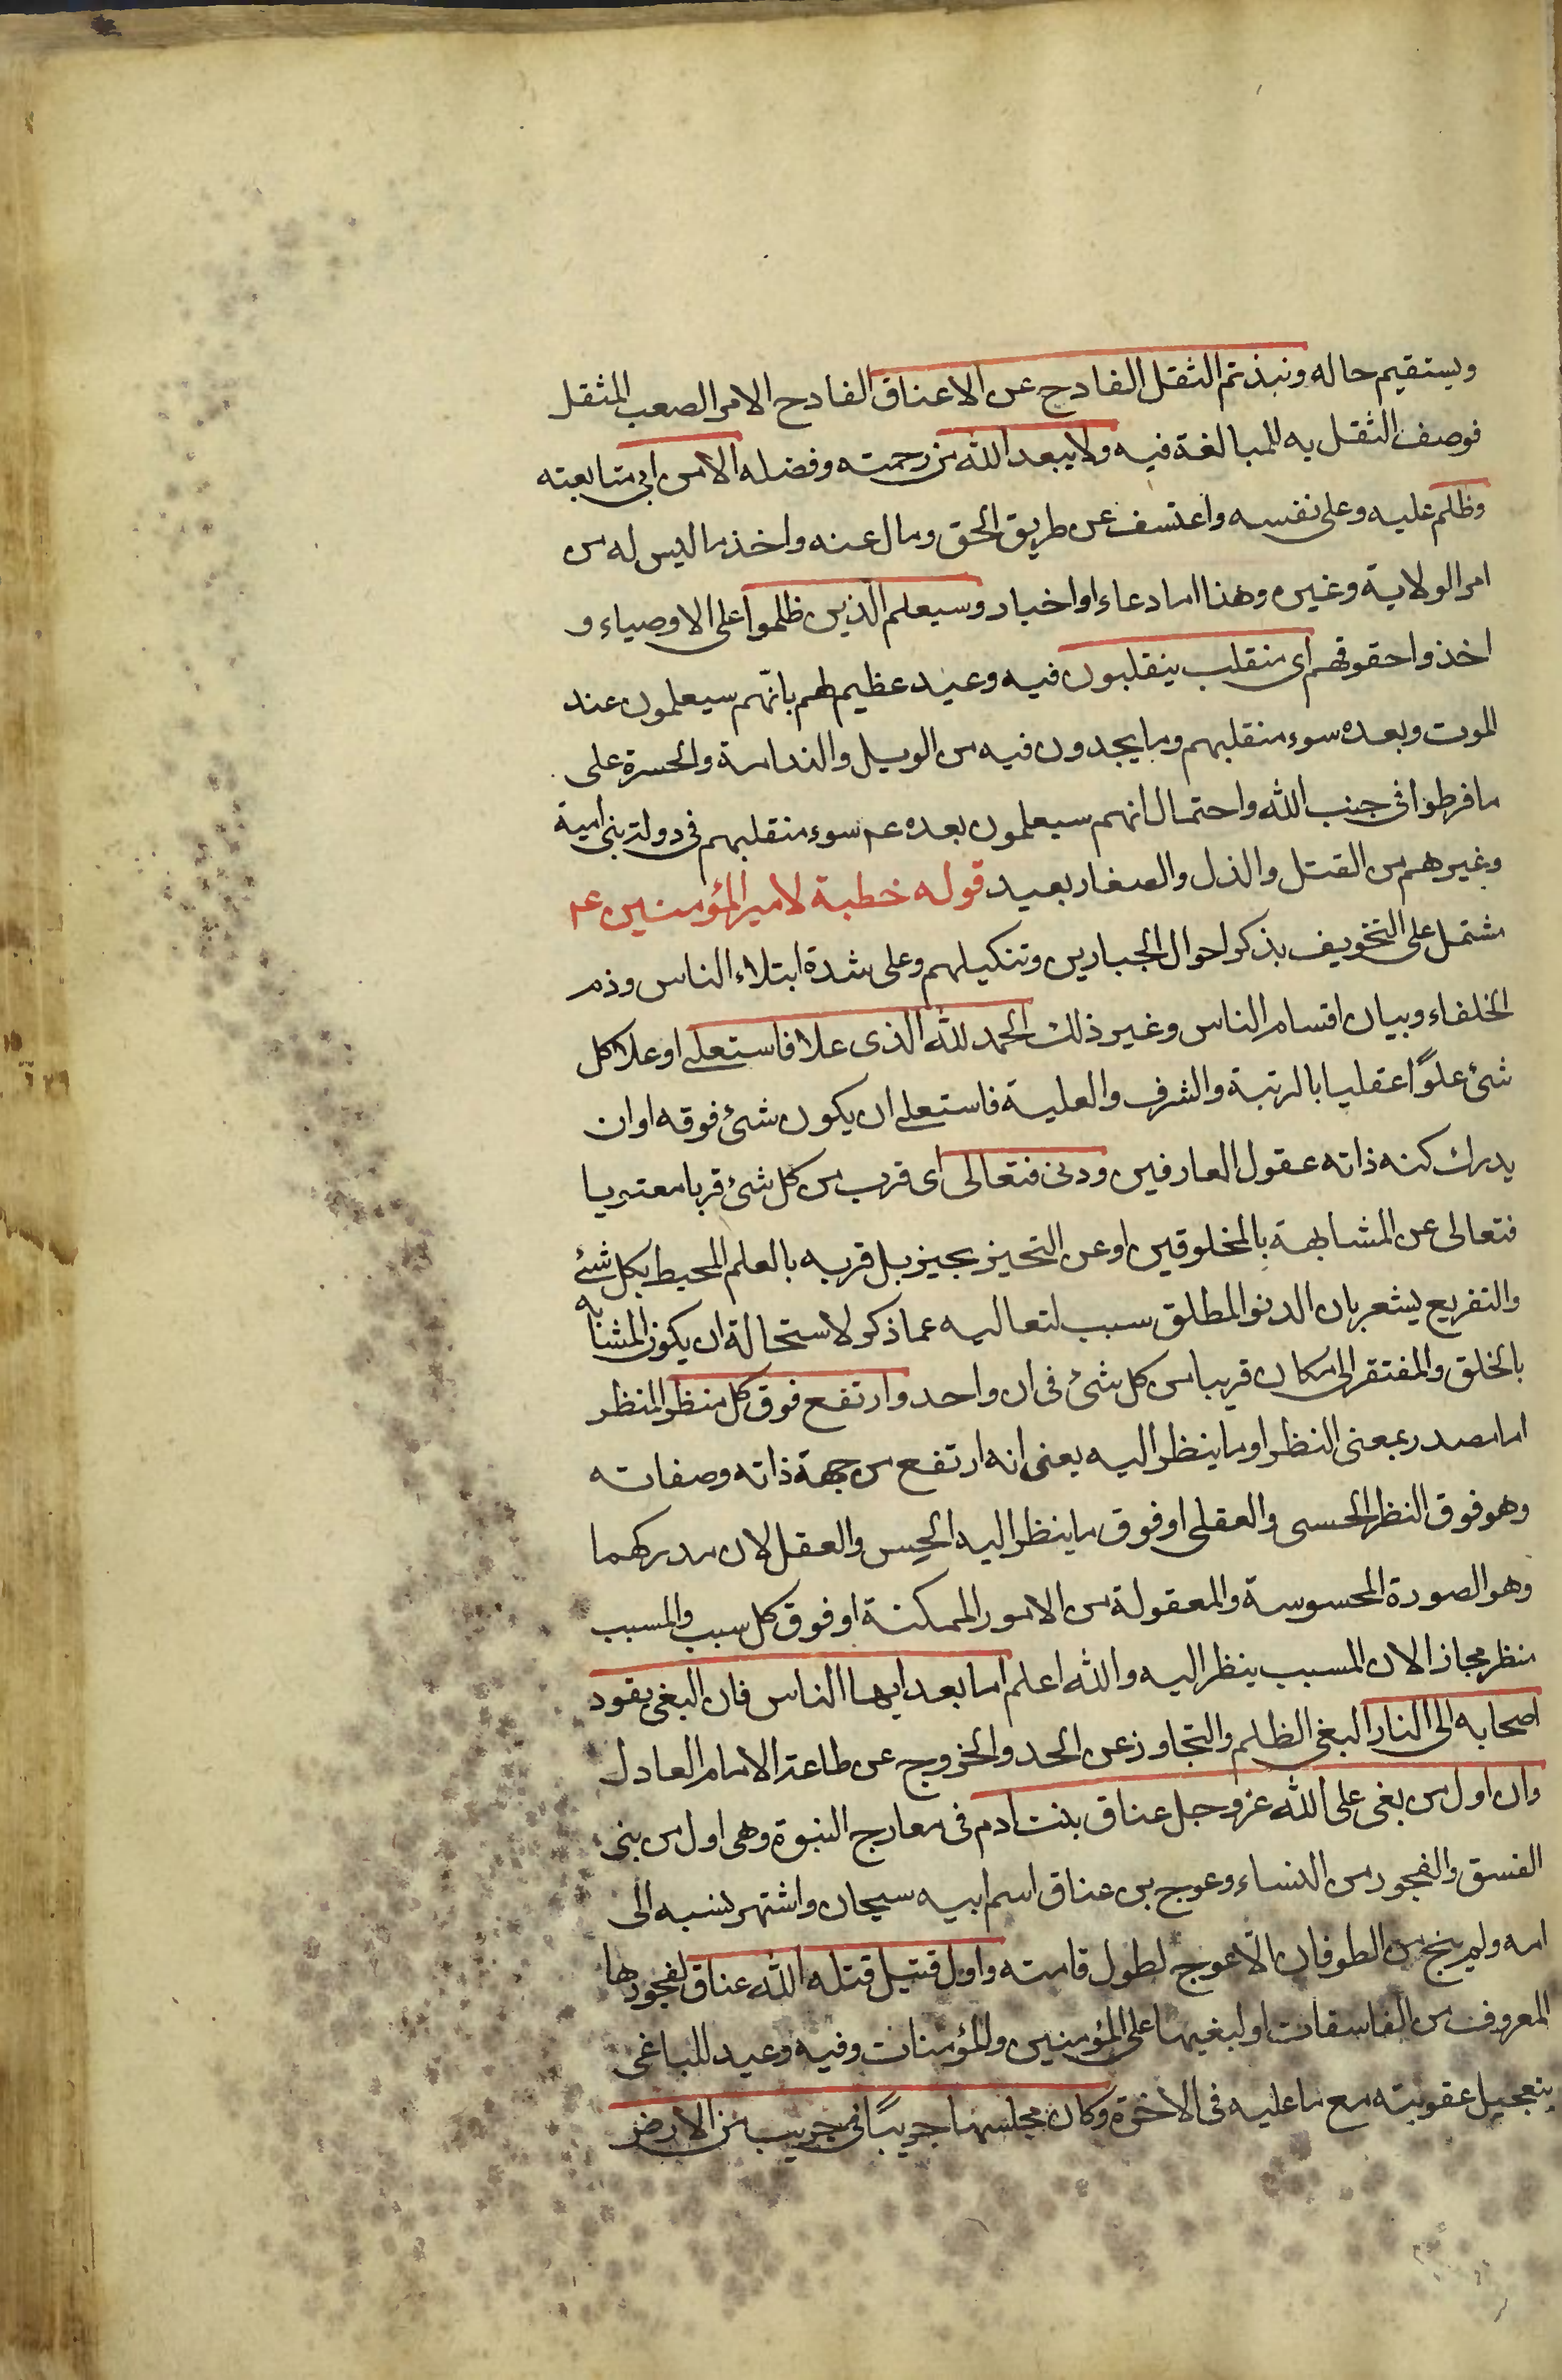 ويستقيم حاله ونبذتم الثقل الفادح عن الاعناق الفادح الامر الصعب المثقل
فوصف الثقل به للمبالغة فيه ولا يبعد الله من رحمته وفضله الا من ابى متابعته
وظلم عليه وعلى نفسه واعتسف عن طريق الحق ومال عنه واخذ ما ليس له من
امر الولاية وغيره وهذا اما دعاء او اخبار وسيعلم الذين ظلموا على الاوصياء و
اخذوا حقوقهم اى منقلب ينقلبون فيه وعيد عظيم لهم بانّهم سيعلمون عند
الموت وبعده سوء منقلبهم وما يجدون فيه من الويل والندامة والحسرة على
ما فرطوا فى جنب الله واحتمال انهم سيعلمون بعده عم سوء منقلبهم فى دولة بنى امية
وغيرهم من القتل والذل والصغار بعيد قوله خطبة لامير المؤمنين عم
مشتمل على التخويف بذكر احوال الجبارين وتنكيلهم وعلى شدة ابتلاء الناس وذم
الخلفاء وبيان اقسام الناس وغير ذلك الحمد لله الذى علا فاستعلى او علا كل
شئ علوًا عقليا بالرتبة والشرف والعلية فاستعلى ان يكون شئ فوقه او ان
يدرك كنه ذاته عقول العارفين ودنى فتعالى اى قرب من كل شئ قربا معتبريا
فتعالى عن المشابهة بالمخلوقين او عن التحيز بحيز بل قربه بالعلم المحيط بكل شئ
والتفريع يشعر بان الدنو المطلق سبب لتعاليه عما ذكر لاستحالة ان يكون المشابه
بالخلق والمفتقر الى مكان قريبا من كل شئ فى ان واحد وارتفع فوق كل منظر المنظر
اما مصدر بمعنى النظر او ما ينظر اليه يعنى انه ارتفع من جهة ذاته وصفاته
وهو فوق النظر الحسى والعقلى او فوق ما ينظر اليه الحس والعقل لان مدركهما
وهو الصورة المحسوسة والمعقولة من الامور الممكنة او فوق كل سبب والمسبب
منظر مجازا لان المسبب ينظر اليه والله اعلم اما بعد ايها الناس فان البغى يقود
اصحابه الى النار البغى الظلم والتجاوز عن الحد والخروج عن طاعة الامام العادل
وان اول من بغى على الله عز وجل عناق بنت ادم فى معارج النبوة وهى اول من بنى
الفسق والفجور من النساء وعوج بن عناق اسم ابيه سيحان واشتهر نسبه الى
امه ولم ينج من الطوفان الّا عوج لطول قامته واول قتيل قتله الله عناق لفجورها
المعروف من الفاسقات او لبغيها على المؤمنين والمؤمنات وفيه وعيد للباغى
بتعجيل عقوبته مع ما عليه فى الاخرة وكان مجلسها جريبًا فى جريب من الارض